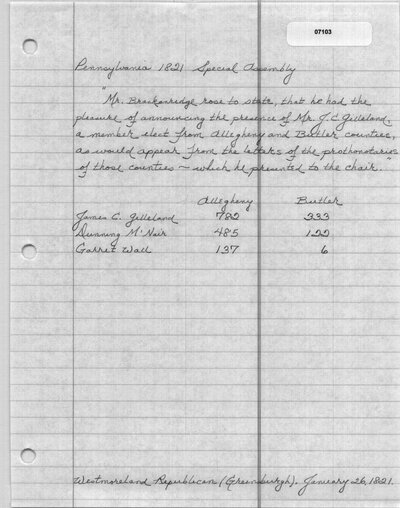 07103
Pennsylvania 1821 Special Assembly
"Mr. Brackenridge rose to state, that he had the
pleasure of announcing the presence of Mr. J. C Gilleland,
a member elect from Allegheny and Butler counties,
as would appear from the letters of the prothonotaries
of those counties – which he presented to the chair."
Allegheny Butler
James C. Gilleland 782 333
Dunning McNair 485 122
Garret Wall 137 6
Westmoreland Republican (Greensburgh). January 26, 1821.